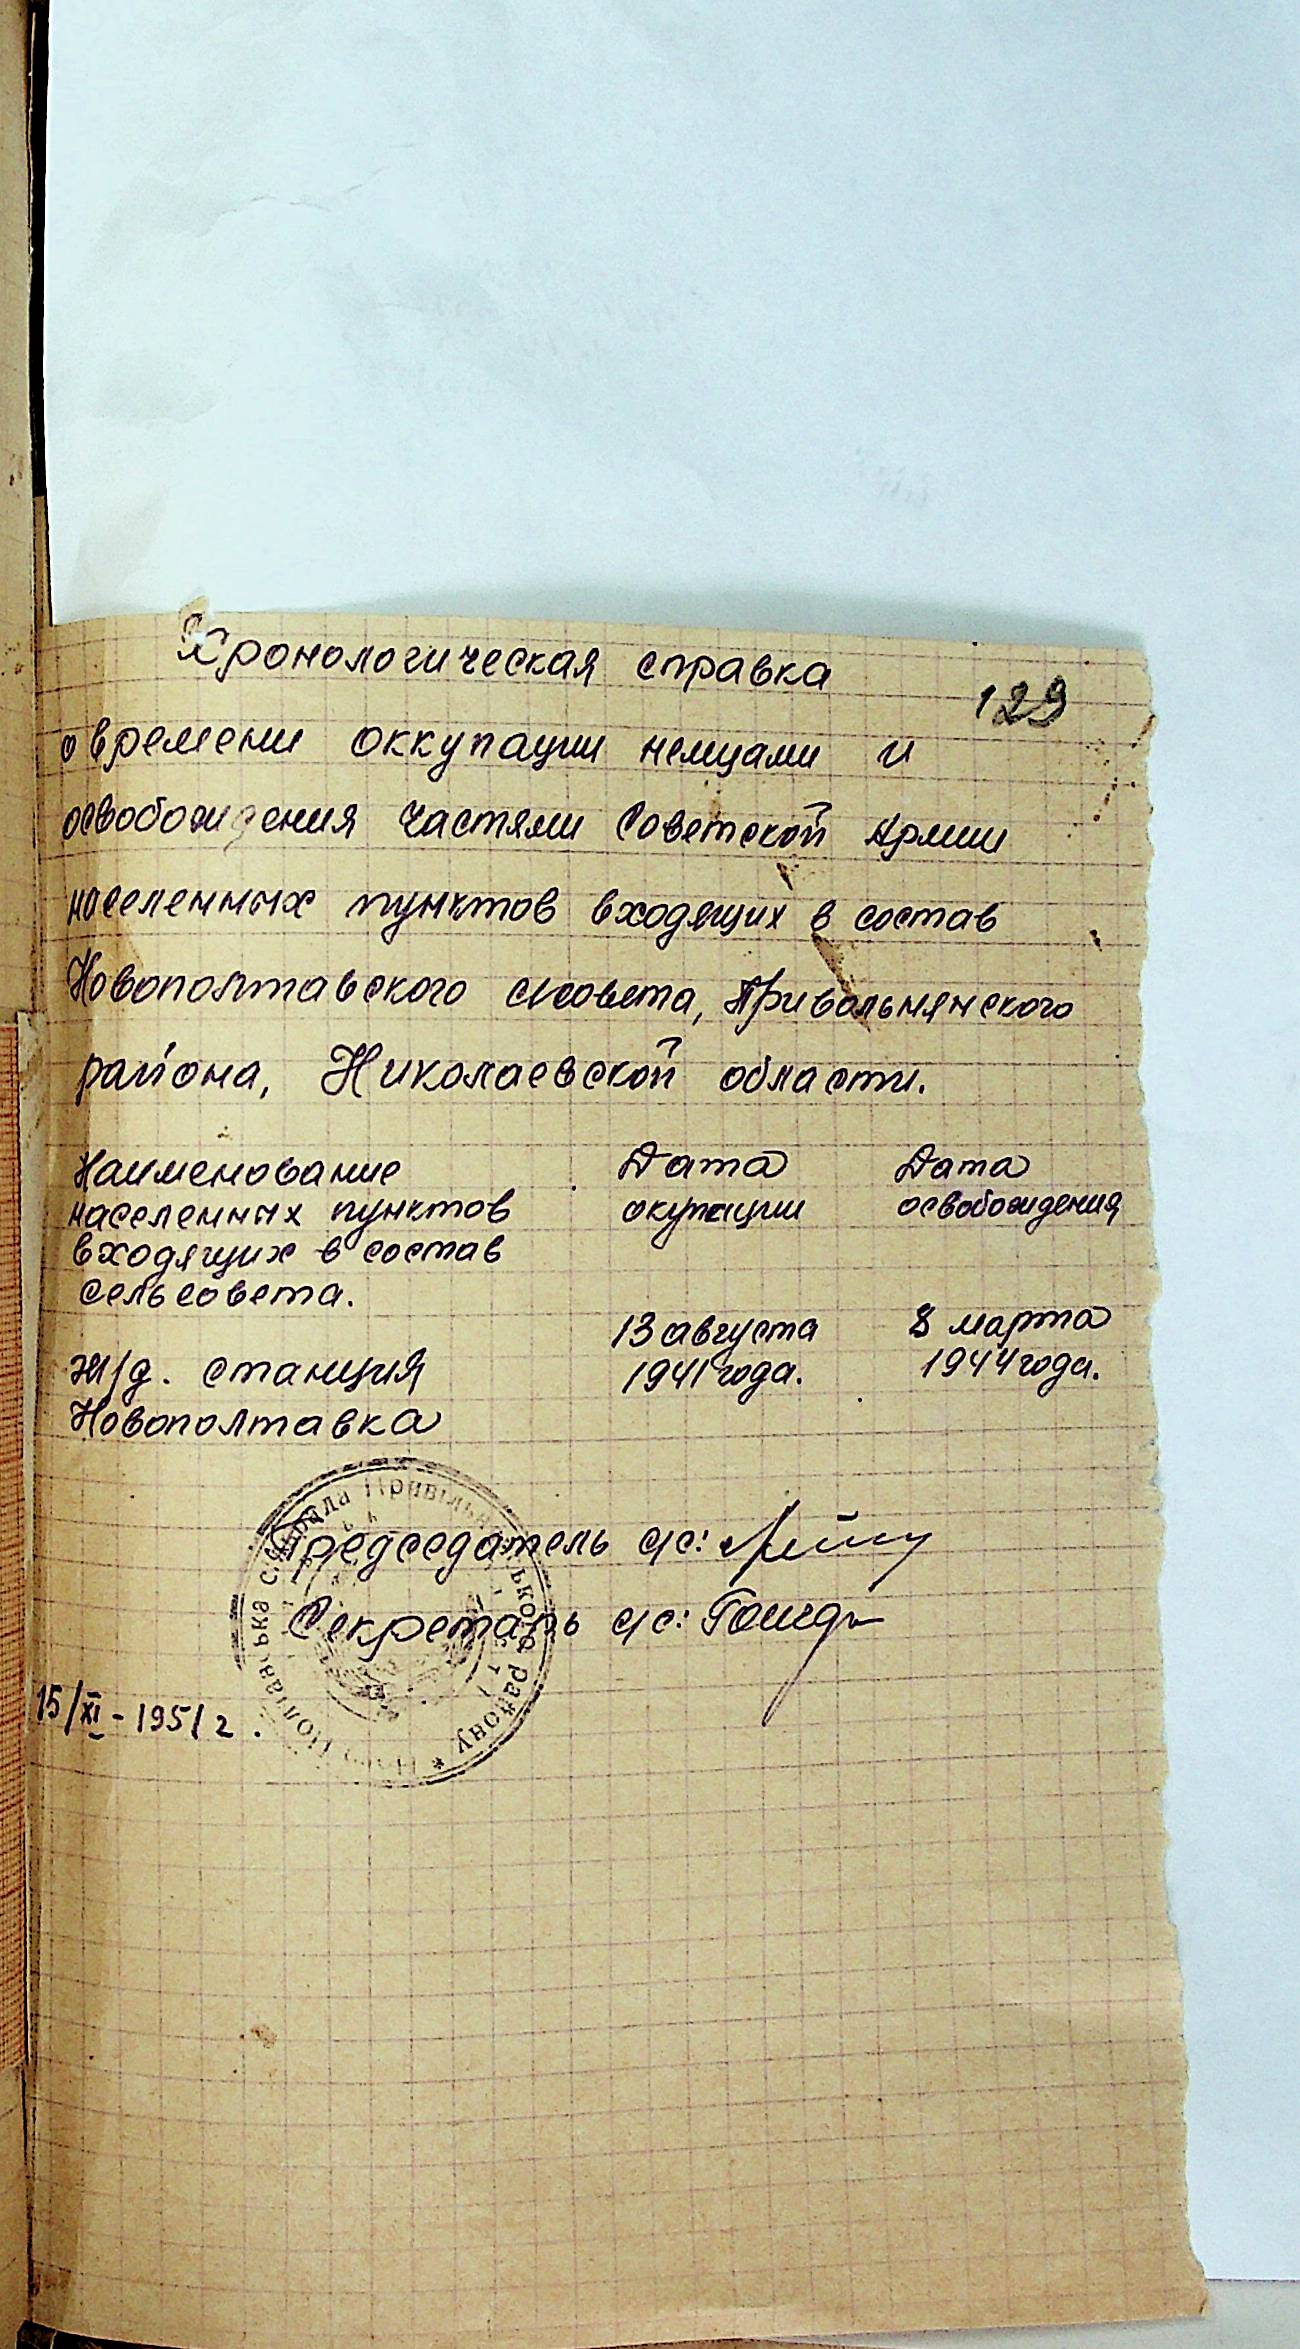 Хронологическая справка
129
о времени оккупации немцами и
освобождения частями Советской Армии
населенных пунктов входящих в состав
Новополтавского с/совета, Привольнянского
района, Николаевской области.
Наименование населенных пунктов входящих в состав сельсовета.
Дата окупации
Дата освобождения
ж/д. станция Новополтавка
13 августа 1941 года.
8 марта 1944 года.
Председатель с/с:
Секретарь с/с:
15/XI - 1951 г.
рада Привільнянського району *